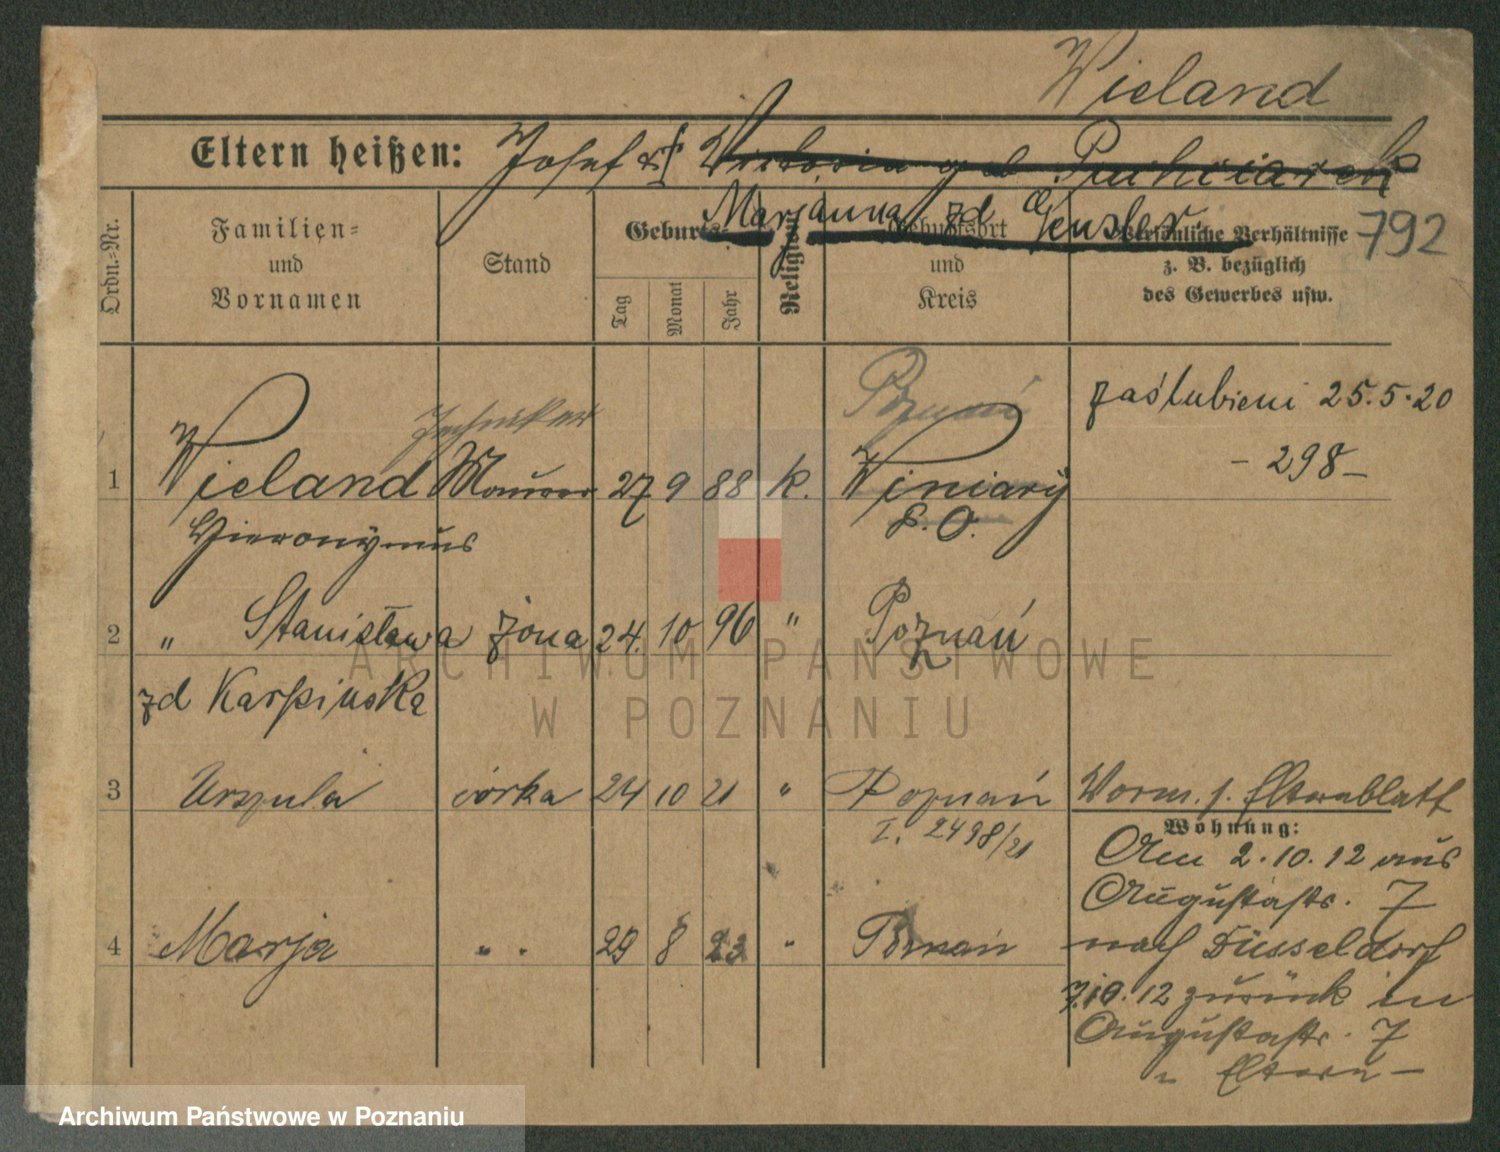 Wieland
Eltern heißen: Josef u. Victoria gb
Marjanna zd Gensler
792
Ordn.-Nr.
Familien-
und
Vornamen
Stand
Geburts-
Tag
Monat
Jahr
Religion
Geburtsort
und
Kreis
Persönliche Verhältnisse
z. B. bezüglich
des Gewerbes usw.
Poznań
zaślubieni 25.5.20
Techniker
- 298 -
1 Wieland Maurer 27 9 88 k. Winiary
Hieronymus P. O.
2 " Stanisława żona 24. 10 96 " Poznań
zd Karpińska
3 Urszula córka 24 10 21 " Poznań Vorm. s. Elternblatt
I. 2498/21
Wohnung:
Am 2.10.12 aus
Augustastr. 7
4 Marja " " 29 8 23 " Poznań nach Düsseldorf
7.10.12 zurück in
Augustastr. 7
Eltern -
ARCHIWUM PAŃSTWOWE
W POZNANIU
Archiwum Państwowe w Poznaniu